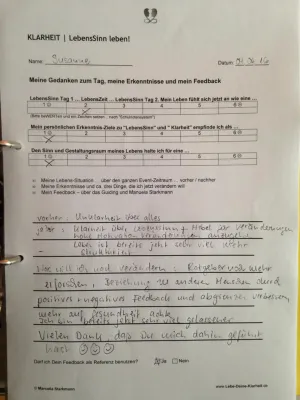 KLARHEIT | LebensSinn leben!
Name: Susanne Datum 01.06.16
Meine Gedanken zum Tag, meine Erkenntnisse und mein Feedback
LebensSinn Tag 1 ... LebensZeit ... LebensSinn Tag 2. Mein Leben fühlt sich jetzt an wie eine ...
1 ☺ 2 3 4 5 6 ☹
Mein persönlichen Erkenntnis-Ziele zu "LebensSinn" und " Klarheit" empfinde ich als
1 ☺ 2 3 4 5 6 ☹
Den Sinn und Gestaltungsraum meines Lebens halte ich für eine ...
1 ☺ 2 3 4 5 6 ☹
Meine Lebens-Situation ... über den ganzen Event-Zeitraum ... vorher / nachher
Meine Erkenntnisse und ca. drei Dinge, die ich jetzt verändern will
Mein Feedback – über das Guiding und Manuela Starkmann
vorher: Unklarheit über alles
jetzt: Klarheit über
hohe Motivation Veränderungen anzugehen
Leben ist bereits jetzt sehr viel mehr
Was will ich noch verändern: Ratgeber noch mehr
, Beziehung zu anderen Menschen durch
positives + negatives Feedback und abgrenzen verbessern,
mehr auf Gesundheit achten
Ich bin bereits jetzt sehr viel gelassener
Vielen Dank, dass Du mich dahin geführt
hast ☺☺☺
Darf ich Dein Feedback als Referenz benutzen? Ja Nein
© Manuela Starkmann www.Lebe-Deine-Klarheit.de